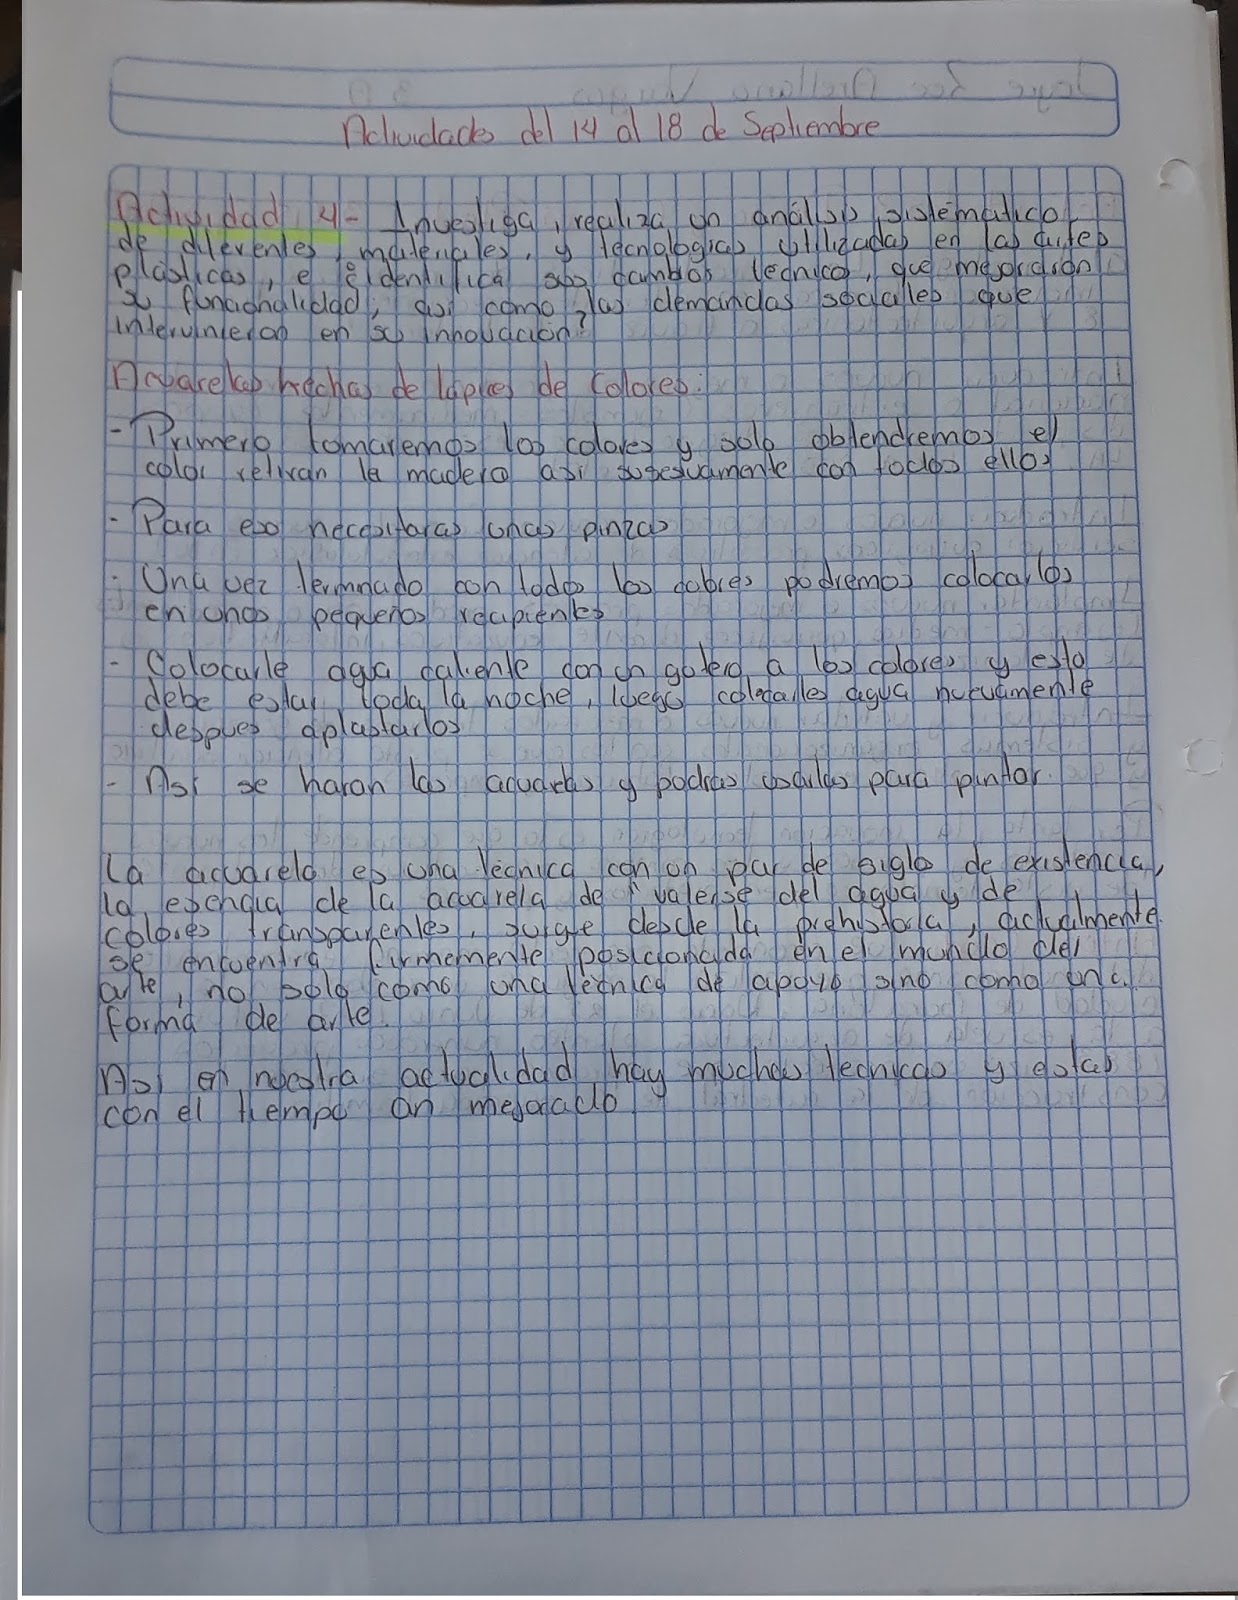 Actividades del 14 al 18 de Septiembre
Actividad 4- Investiga, realiza un análisis sistemático
de diferentes materiales, y tecnologias utilizadas en las artes
plásticas, e identifica sus cambios técnicos, que mejoraron
su funcionalidad, asi como las demandas sociales que
intervinieron en su innovación?
Acuarelas hechas de lápices de colores:
- Primero tomaremos los colores y solo obtendremos el
color retiran la madera asi susesivamente con todos ellos
- Para eso necesitaras unas pinzas
- Una vez terminado con todos los colores podremos colocarlos
en unos pequeños recipientes
- Colocarle agua caliente con un gotero a los colores y esto
debe estar toda la noche, luego colocarles agua nuevamente
despues aplastarlos
- Asi se haran las acuarelas y podras usarlas para pintar.
La acuarela es una técnica con un par de siglo de existencia,
la esencia de la acuarela de valerse del agua y de
colores transparentes, surge desde la prehistoria, actualmente
se encuentra firmemente posicionada en el mundo del
arte, no solo como una técnica de apoyo sino como una
forma de arte.
Asi en nuestra actualidad hay muchas tecnicas y estas
con el tiempo an mejorado